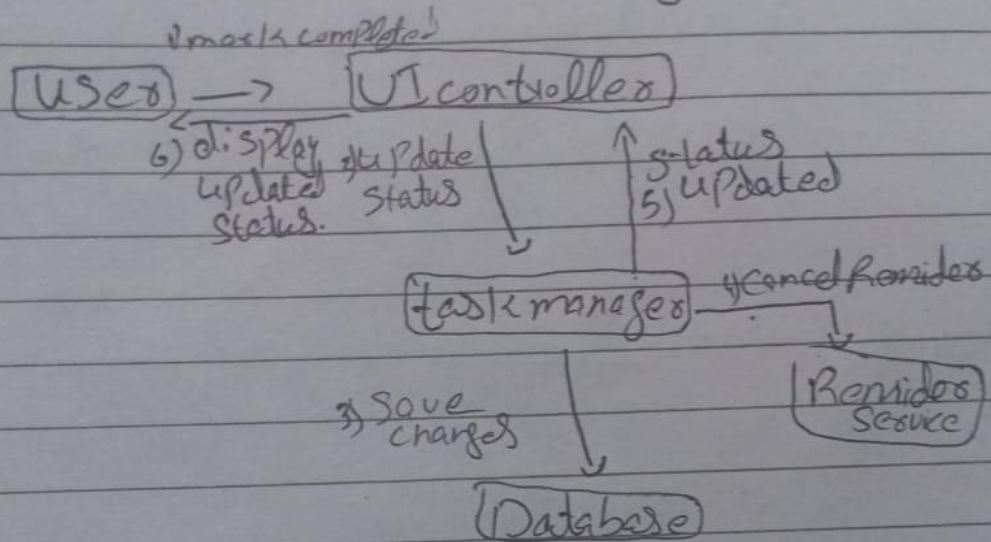 1) mark completed
User
UI controller
6) display
updated
status.
2) update
status
status
5) updated
task manager
4) Cancel Remider
3) Save
changes
Remider
service
Database